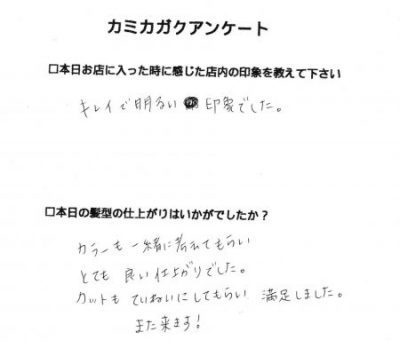 カミカガクアンケート
□本日お店に入った時に感じた店内の印象を教えて下さい
キレイで明るい 印象でした。
□本日の髪型の仕上がりはいかがでしたか?
カラーも一緒に考えてもらい
とても良い仕上がりでした。
カットもていねいにしてもらい 満足しました。
また来ます!